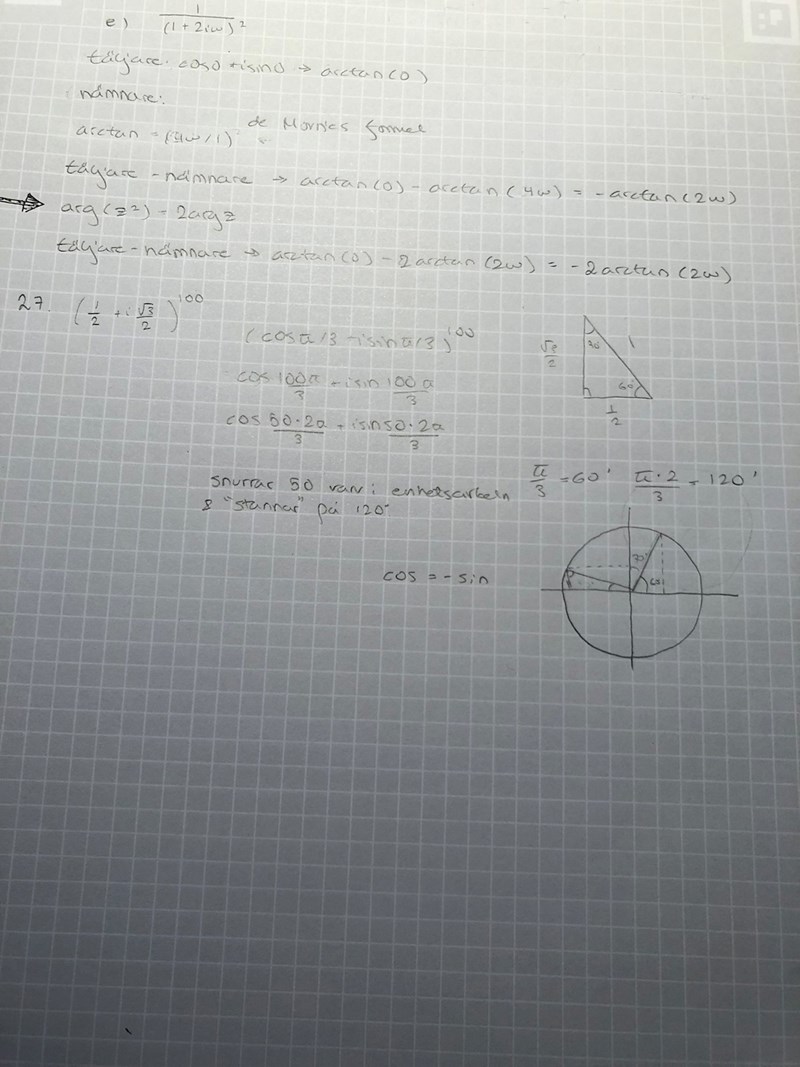 e) 1/(1+2iω)²
täljare: cos0 + isin0 → arctan(0)
nämnare:
arctan = (4ω/1) de Morvies formel
täljare - nämnare → arctan(0) - arctan(4ω) = -arctan(2ω)
arg(z²) = 2arg z
täljare - nämnare → arctan(0) - 2arctan(2ω) = -2arctan(2ω)
27. (1/2 + i √3/2)^100
(cos π/3 + isin π/3)^100
cos 100π/3 + isin 100π/3
cos 50·2π/3 + isin 50·2π/3
√3/2 30° 1
60°
1/2
snurrar 50 varv i enhetscirkeln
& "stannar" på 120°
π/3 = 60° π·2/3 = 120°
cos = -sin
30°
60°